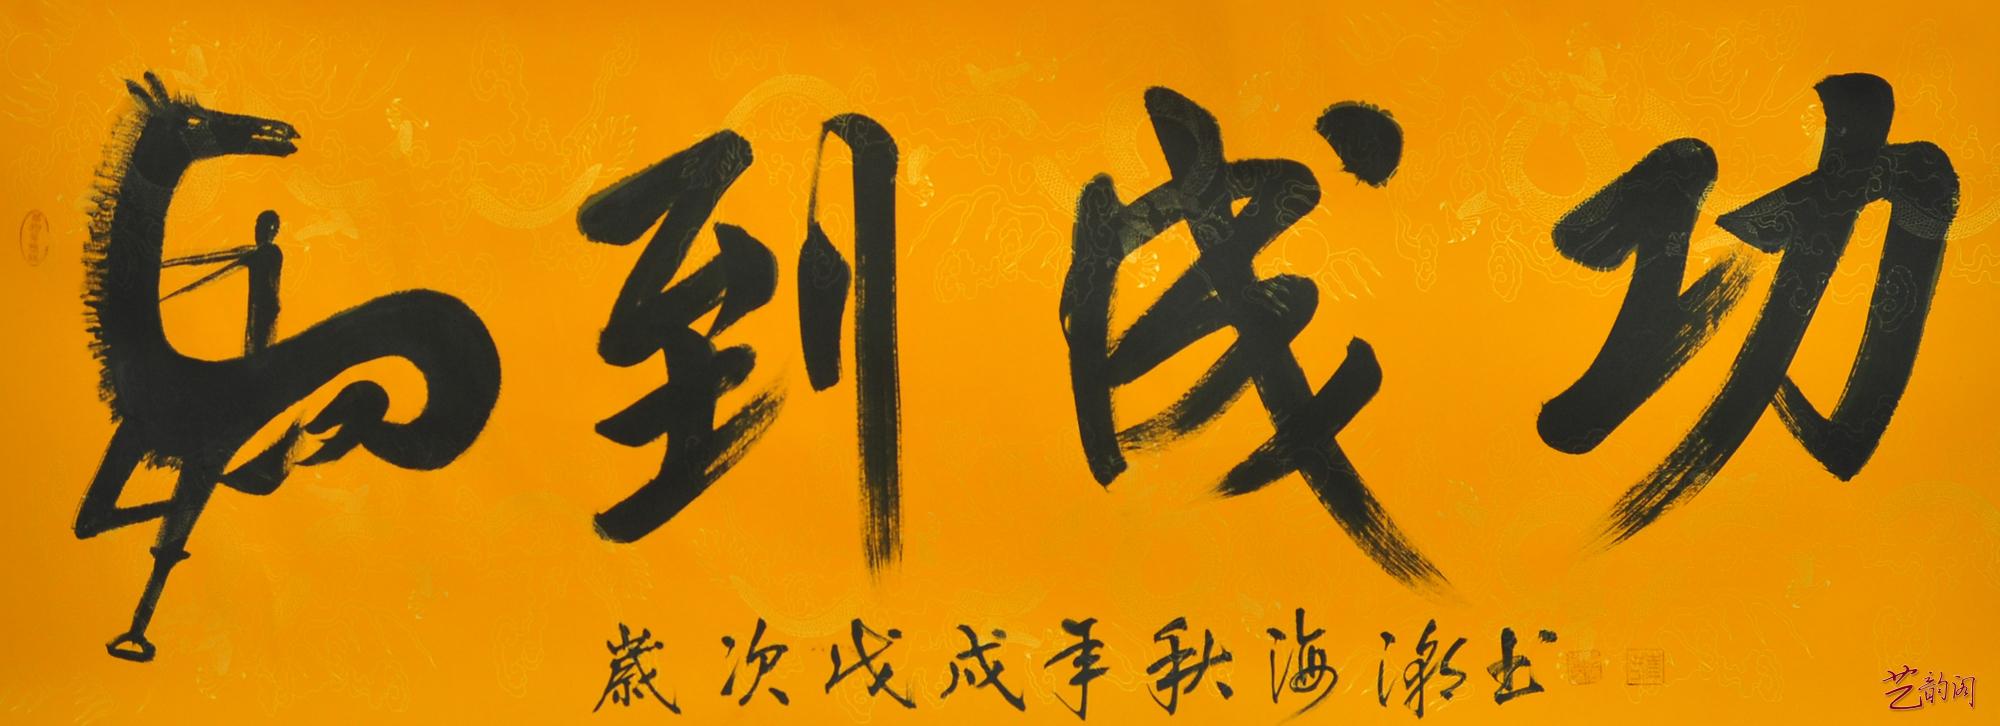 马到成功
歲次戊戌年秋海潮书
艺韵阁